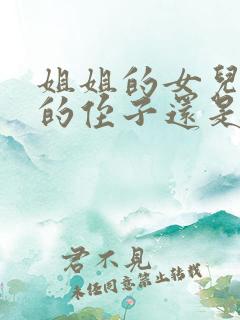 姐姐的女兒
的侄子還是
君不見
未経同意禁止转载